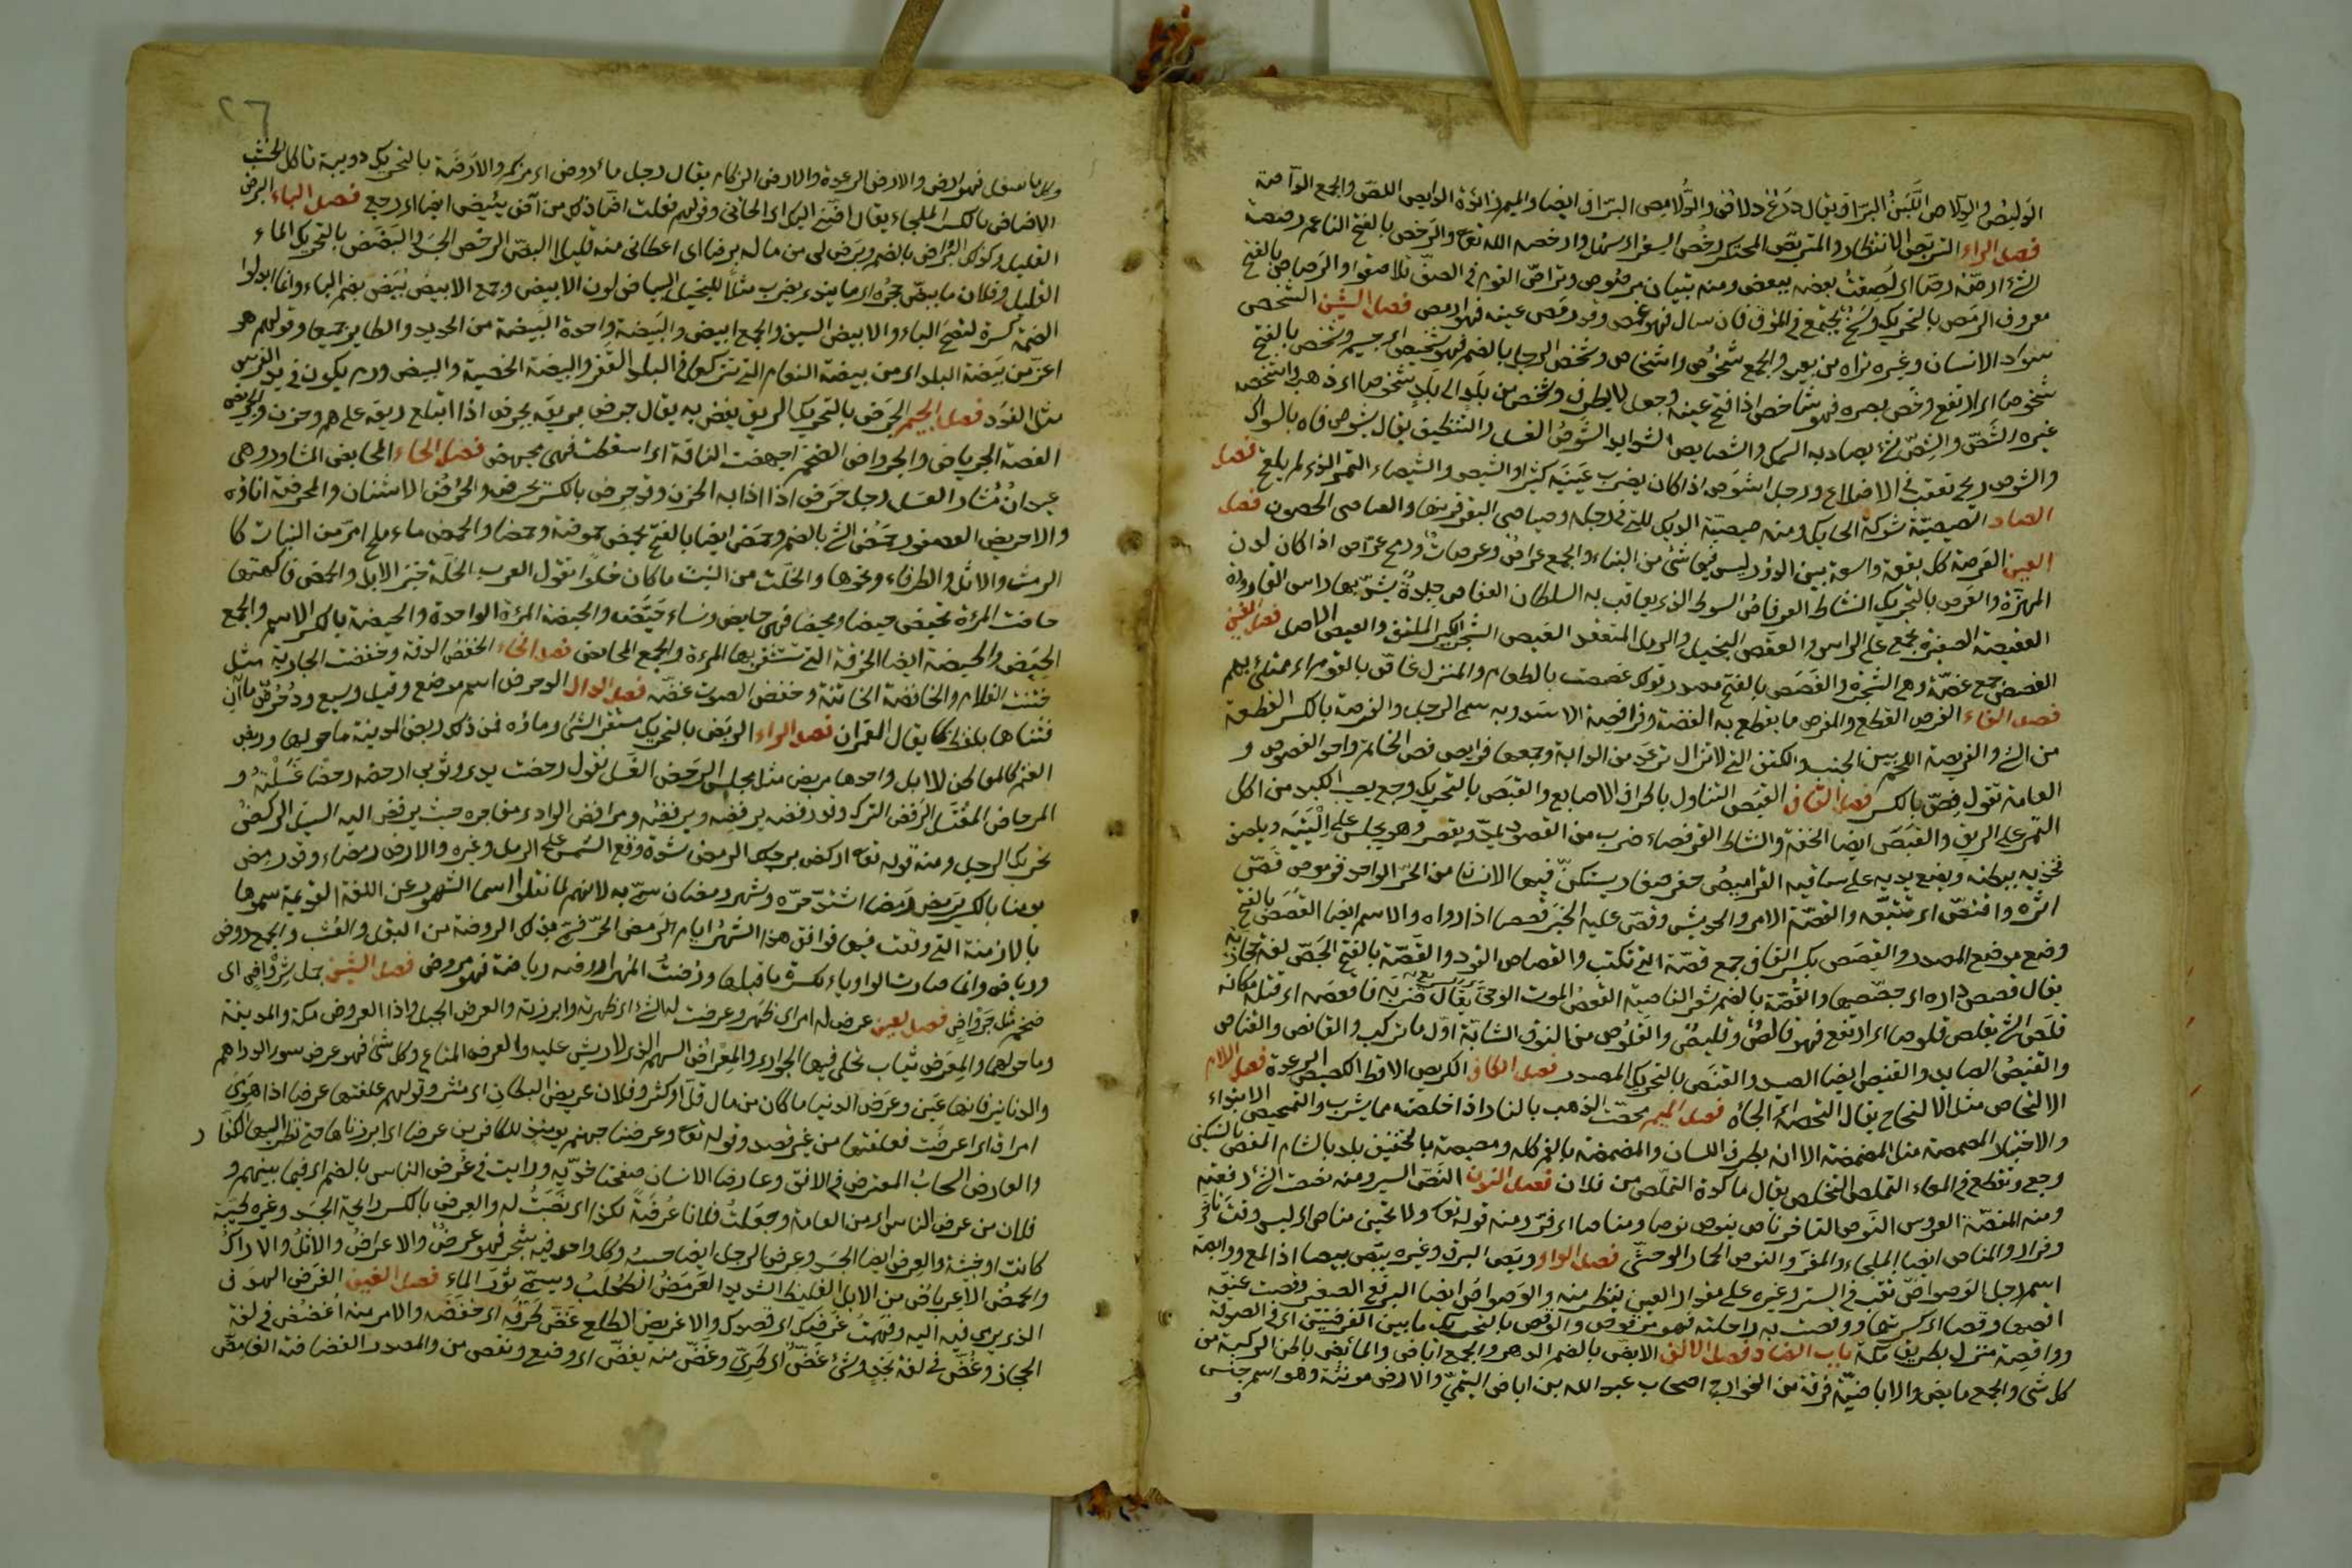 فصل الراء التربص الانتظار والمتربص المحتكر رخص السعر اى سهل وارخصه الله تع والرخص بالفتح الناعم رخصت
الشئ ارصّه رصّا اى لصقت بعضه ببعض ومنه بنيان مرصوص وتراصّ القوم فى الصفّ تلاصقوا والرصاص بالفتح
معروف الرمص بالتحريك وسخ يجتمع فى الموق فان سال فهو غمص وقد رمصت عينه فهو ارمص فصل الشين الشخص
سواد الانسان وغيره تراه من بعيد والجمع شخوص واشخاص وشخص الرجل بالضم فهو شخيص اى جسيم وشخص بالفتح
شخوصا اى ارتفع وشخص بصره فهو شاخص اذا فتح عينه وجعل لا يطرف وشخص من بلد الى بلد شخوصا اى ذهب واشخصه
غيره الشصّ والشصّ شئ يصاد به السمك والشصايص الشدايد الشوص الغسل والتنظيف يقال يشوص فاه بالسواك
والشوص ريح تعقب فى الاضلاع ورجل اشوص اذا كان يضرب عينيه كثيرا والشيص والشيصاء التمر الذى لم يلقح فصل
الصاد الصيصية شوكة الحايك ومنه صيصية الديك للتى فى رجله وصياصى البقر قرونها والصياصى الحصون فصل
العين العرصة كل بقعة واسعة بين الدور ليس فيها شئ من البناء والجمع عراص وعرصات ورمح عرّاص اذا كان لدن
المهزّة والعرص بالتحريك النشاط العرفاص السوط الذى يعاقب به السلطان العفاص جلدة يشدّ بها راس القارورة
العقيصة الضفيرة تجمع على الراس والعقص البخيل والرمل المتعقد العيص الشجر الكثير الملتف والعيص الاصل فصل الغين
الغصص جمع غصّة وهى الشجى والغصص بالفتح مصدر قولك غصصت بالطعام والمنزل غاصّ بالقوم اى ممتلئ بهم
فصل الفاء الفرص القطع والمفرص ما يقطع به الفضة وفرافصة الاسد وبه سمى الرجل والفرصة بالكسر القطعة
من الشئ والفريصة اللحم بين الجنب والكتف التى لا تزال ترعد من الدابة وجمعها فرايص فص الخاتم واحد الفصوص و
العامة تقول فِصّ بالكسر فصل القاف القبص التناول باطراف الاصابع والقبص بالتحريك وجع يصيب الكبد من اكل
التمر على الريق والقبص ايضا الخفة والنشاط القرفصاء ضرب من القعود يمدّ ويقصر وهو يجلس على اليتيه ويلصق
فخذيه ببطنه ويضع يديه على ساقيه القراميص حفر صغار يستكنّ فيها الانسان من الحرّ الواحد قرموص قصّ
اثره واقتصّ اى تتبّعه والقصّة الامر والحديث وقصّ عليه الخبر قصصا اذا رواه والاسم ايضا القصص بالفتح
وضع موضع المصدر والقصص بكسر القاف جمع قصّة التى تكتب والقصاص القود والقصّة بالفتح الجصّ لغة حجازية
يقال قصص داره اى جصّصها والقصّة بالضم شعر الناصية القعص الموت الوحىّ يقال ضربه فاقعصه اى قتله مكانه
قلص الشئ يقلص قلوصا اى ارتفع فهو قالص وقليص والقلوص من النوق الشابّة اوّل ما تركب والقانص والقناص
والقنيص الصايد والقنيص ايضا الصيد والقنص بالتحريك المصدر فصل الكاف الكريص الاقط الكصيص الرعدة فصل اللام
الالتحاص مثل الالتحاج يقال التحصه الى الجأه فصل الميم محصت الذهب بالنار اذا اخلصته مما يشوب والتمحيص الابتلاء
والاختبار المصمصة مثل المضمضة الا انه بطرف اللسان والمضمضة بالفم كله ومصيصة بالتخفيف بلد بالشام المغص بالتسكين
وجع وتقطيع فى المعاء التملص التخلص يقال ما كدت اتملّص من فلان فصل النون النصّ السير ومنه نصصت الشئ رفعته
ومنه المنصّة العروس النوص التاخر ناص ينوص نوصا ومناصا اى فرّ ومنه قوله تع ولات حين مناص اى ليس وقت تاخّر
وفرار والمناص ايضا الملجاء والمفرّ والنوص الحمار الوحشى فصل الواو وبص البرق وغيره يبص وبيصا اذا لمع ووابصة
اسم رجل الوصواص ثقب فى الستر وغيره على مقدار العين ينظر منه والوصواص ايضا البرقع الصغير وقصت عنقه
اقصها وقصا اى كسرتها ووقصت به راحلته فهو موقوص والوقص بالتحريك ما بين الفريضتين اى فى الصدقة
وواقصة منزل بطريق مكة باب الضاد فصل الالف الابض بالضم الدهر والجمع آباض والمأبض باطن الركبة من
كل شئ والجمع مآبض والاباضيّة فرقة من الخوارج اصحاب عبد الله بن اباض التميمىّ والارض مؤنثة وهو اسم جنس
و
٢٦
والارض الرعدة والارض الزكام يقال رجل مأروض اى مزكوم والارضة بالتحريك دويبة تاكل الخشب
الاضاض بالكسر الملجاء يقال اضّنى اليك اى الجانى وقولهم فعلت ايضا ذلك من آض يئيض ايضا اى رجع فصل الباء البرض
القليل وكذلك البراض بالضم وبرض لى من ماله برضا اى اعطانى منه قليلا البضّ الرخص الجسد والبضض بالتحريك الماء
القليل وفلان ما يبضّ حجره اى ما يندى يضرب مثلا للبخيل البياض لون الابيض وجمع الابيض بيض بضم الباء وانما ابدلوا
الضمة كسرة لتصح الياء والابيض السيف والجمع البيض والبيضة واحدة البيضة من الحديد والطاير جميعا وقولهم هو
اعز من بيضة البلد اى من بيضة النعام التى تتركها فى البلد القفر والبيضة الخصية والبيض ورم يكون فى يد الفرس
مثل الغدد فصل الجيم الجرض بالتحريك الريق يغص به يقال جرض بريقه يجرض اذا ابتلع ريقه على هم وحزن والجريض
الغصة الجرياض والجرواض الضخم اجهضت الناقة اى اسقطت فهى مجهض فصل الحاء المحابض المشاور وهى
عيدان مشار العسل رجل حرض اذا اذابه الحزن وقد حرض بالكسر يحرض والحرض الاشنان والمحرضة اناؤه
والاحريض العصفر وحمض الشئ بالضم وحمض ايضا بالفتح يحمض حموضة وحمضا والحمض ماء ملح امرّ من النبات كا
الرمث والاثل والطرفاء ونحوها والخلّة من النبت ما كان حلوا تقول العرب الخلّة خبز الابل والحمض فاكهتها
حاضت المرأة تحيض حيضا ومحيضا فهى حايض ونساء حيّض والحيضة المرّة الواحدة والحيضة بالكسر الاسم والجمع
الحيض والحيضة ايضا الخرقة التى تستثفر بها المرءة والجمع المحايض فصل الخاء الخفض الدعة وخفضت الجارية مثل
ختنت الغلام والخافضة الخاتنة وخفض الصوت غضّه فصل الدال الدحرض اسم موضع وقيل وسيع ودحرض ماآن
فثناها بلفظ كما يقال القمران فصل الراء الربض بالتحريك مستقر الشئ وماواه فمن ذلك ربض المدينة ما حولها وربض
الغنم كالمعاطن للابل واحدها مربض مثل مجلس الرحض الغسل تقول رحضت يدى وثوبى ارحضه رحضا غسلته و
المرحاض المغتسل الرفض الترك وقد رفضه يرفضه ويرفضه ومرافض الوادى مفاجره حيث يرفض اليه السيل الركض
تحريك الرجل ومنه قوله تع اركض برجلك الرمض شدة وقع الشمس على الرمل وغيره والارض رمضاء وقد رمض
يومنا بالكسر يرمض رمضا اشتدّ حرّه وشهر رمضان سمّى به لانهم لما نقلوا اسما الشهور عن اللغة القديمة سموها
بالازمنة التى وقعت فيها فوافق هذا الشهر ايام الرمض الحرّ فسمّى بذلك الروضة من البقل والعشب والجمع روض
ورياض وانما صارت الواو ياء لكسرة ما قبلها ورضت المهر اروضه رياضة فهو مروض فصل الشين جمل شرواض اى
ضخم مثل جرواض فصل العين عرض له امر اى ظهر وعرضت له الشئ اى ظهرته وابرزته والعرض الجبل واذا العروض مكة والمدينة
وما حولها والمعرض ثياب تحلى فيها الجوارى والمعراض السهم الذى لا ريش عليه والعرض المتاع وكل شئ فهو عرض سوى الدراهم
والدنانير فانها عين وعرض الدنيا ما كان من مال قلّ او كثر وفلان عريض البطان اى مثر وقولهم علقتها عرضا اذا هوى
امراة اى اعرضت فعلقتها من غير قصد وقوله تع وعرضنا جهنم يومئذ للكافرين عرضا اى ابرزناها حتى نظر اليها الكفار
والعارض السحاب المعترض فى الافق وعارضا الانسان صفحتا خدّيه ورايت فى عرض الناس بالضم اى فيما بينهم و
فلان من عرض الناس اى من العامة وجعلت فلانا عرضة لكذا اى نصبت له والعرض بالكسر رايحة الجسد وغيره طيبة
كانت او خبيثة والعرض ايضا الجسد وعرض الرجل ايضا حسبه وكل واد فيه شجر فهو عرض والاعراض والاثل والاراك
والحمض العرباض من الابل الغليظ الشديد العرمض الطحلب ويسمّى ثور الماء فصل الغين الغرض الهدف
الذى يرمى فيه اليه وفهمت غرضك اى قصدك والاغريض الطلع غضّ طرفه اى خفضه والامر منه اغضض فى لغة
الحجاز وغضّ فى لغة نجد وشئ غضّ اى طرىّ وغضّ منه يغضّ اى وضع ونقص من والمصدر الغضاضة الغامض